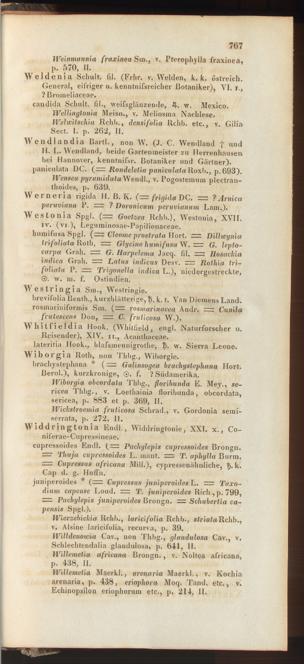 767
Weinmannia fraxinea Sm., v. Pterophylla fraxinea,
p. 570, II.
Weldenia Schult. fil. (Frhr. v. Welden, k. k. östreich.
General, eifriger u. kenntnifsreicher Botaniker), VI. r.,
? Bromeliaceae.
candida Schult. fil., weifsglänzende, ♃. w. Mexico.
Wellingtonia Meisn., v. Meliosma Nachlese.
Welwitschia Rchb., densifolia Rchb. etc., v. Gilia
Sect. I. p. 262, II.
Wendlandia Bartl., non W. (J. C. Wendland † und
H. L. Wendland, beide Gartenmeister zu Herrenhausen
bei Hannover, kenntnifsr. Botaniker und Gärtner).
paniculata DC. (= Rondeletia paniculata Roxb., p. 693).
Wensea pyramidata Wendl., v. Pogostemum plectran-
thoides, p. 639.
Werneria rigida H. B. K. (= frigida DC. = ? Arnica
peruviana P. = ? Doronicum peruvianum Lam.).
Westonia Spgl. (= Goetzea Rchb.), Westonia, XVII.
iv. (vi.), Leguminosae-Papilionaceae.
humifusa Spgl. (= Cleome prostrata Hort. = Dillwynia
trifoliata Roth. = Glycine humifusa W. = G. lepto-
carpa Grah. = G. Harpelema Jacq. fil. = Hosackia
indica Grah. = Lotus indicus Desv. = Rothia tri-
foliata P. = Trigonella indica L.), niedergestreckte,
☉. w. m. f. Ostindien.
Westringia Sm., Westringie.
brevifolia Benth., kurzblätterige, ♄. k. t. Van Diemens Land.
rosmariniformis Sm. (= rosmarinacea Andr. = Cunila
fruticosa Don, = C. fruticosa W.).
Whitfieldia Hook. (Whitfield, engl. Naturforscher u.
Reisender), XIV. II., Acanthaceae.
lateritia Hook., blafsmennigrothe, ♄. w. Sierra Leone.
Wiborgia Roth, non Thbg., Wiborgie.
brachystephana * (= Galinsogea brachystephana Hort.
Berol.), kurzkronige, ☉. f. ? Südamerika.
Wiborgia obcordata Thbg., floribunda E. Mey., se-
ricea Thbg., v. Loethainia floribunda, obcordata,
sericea, p. 883 et p. 369, II.
Wickstroemia fruticosa Schrad., v. Gordonia semi-
serrata, p. 272, II.
Widdringtonia Endl., Widdringtonie, XXI. x., Co-
niferae-Cupressineae.
cupressoides Endl. (= Pachylepis cupressoides Brongn.
= Thuja cupressoides L. mant. = T. aphylla Burm.
= Cupressus africana Mill.), cypressenähnliche, ♄. k.
Cap d. g. Hoffn.
juniperoides * (= Cupressus juniperoides L. = Taxo-
dium capense Loud. = T. juniperoides Rich., p. 799,
= Pachylepis juniperoides Brongn. = Schubertia ca-
pensis Spgl.).
Wierzbickia Rchb., laricifolia Rchb., striata Rchb.,
v. Alsine laricifolia, recurva, p. 39.
Willdenowia Cav., non Thbg., glandulosa Cav., v.
Schlechtendalia glandulosa, p. 641, II.
Willemetia africana Brongn., v. Noltea africana,
p. 438, II.
Willemetia Maerkl., arenaria Maerkl., v. Kochia
arenaria, p. 438, eriophora Moq. Tand. etc., v.
Echinopsilon eriophorum etc., p. 214, II.